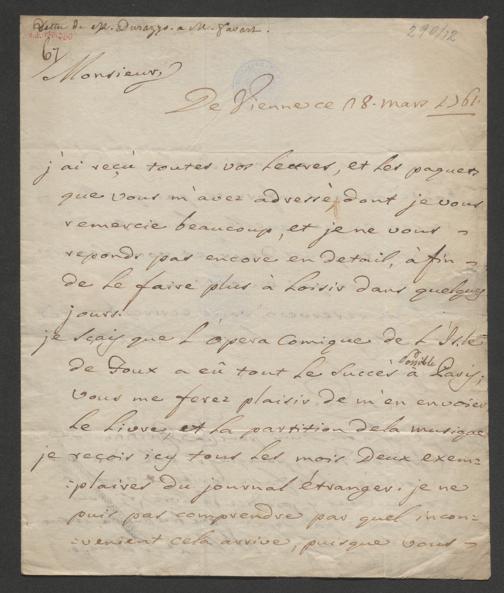 Lettre de M. Durazzo. a M. Favart.
290/12
67
Monsieur,
De Vienne ce 18. mars 1761.
j'ai reçû toutes vos lettres, et les paquets
que vous m'avez adressé, dont je vous
remercie beaucoup, et je ne vous
reponds pas encore en detail, à fin
de le faire plus à loisir dans quelques
jours.
je sçais que l'opera Comique de l'Isle
de Foux a eû tout le succès possible à Paris;
vous me ferez plaisir de m'en envoier
le livre, et la partition de la musique
je reçois icy tous les mois Deux exem-
-plaires du journal étranger. je ne
puis pas comprendre par quel incon-
-venient cela arrive, puisque vous